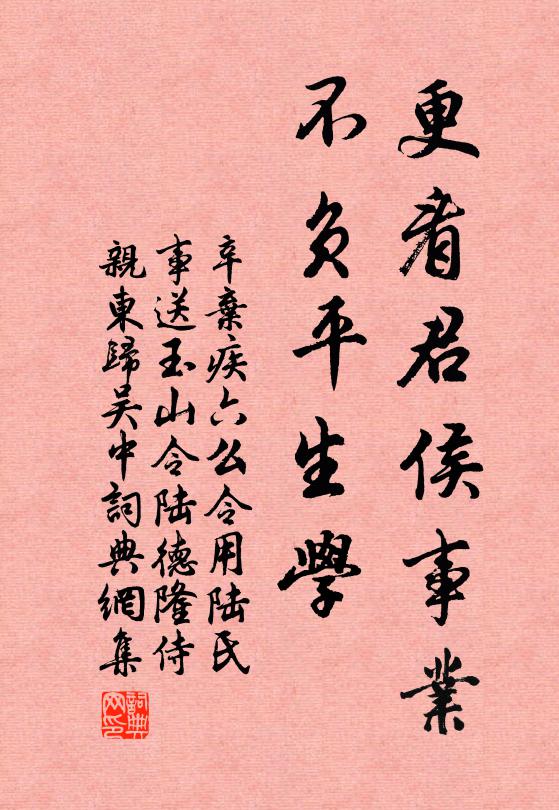 更看君侯事業
不負平生學
辛棄疾六么令用陸氏
事送玉山令陸德隆侍
親東歸吳中詞典網集
詞典
网印